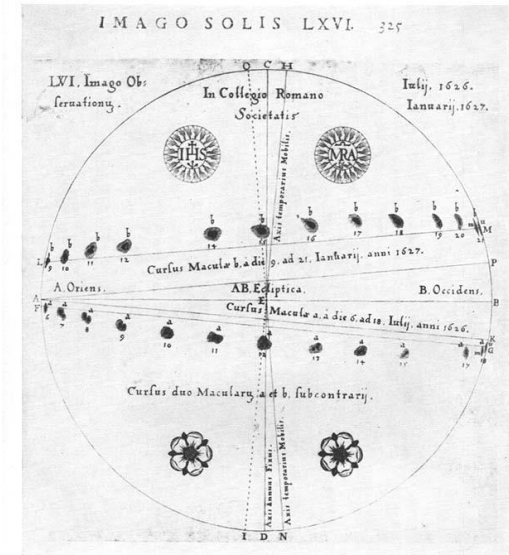 IMAGO SOLIS LXVI. 325
O C H
LVI. Imago Ob=
seruationũ.
In Collegio Romano
Societatis
Iulij. 1626.
Ianuarij. 1627.
IHS
MRA
Axis temporarius Mobilis.
b b b b b b b b b b b
L 9 10 11 12 14 15 16 17 18 19 20 21 M
Cursus Maculæ b, a die 9. ad 21. Ianuarij. anni 1627.
P
A. Oriens. AB. Ecliptica. B. Occidens.
A E B
F
Cursus Maculæ a, a die 6. ad 18. Iulij. anni 1626.
K
G
a a a a a a a a a a
6 7 8 9 10 11 12 13 14 15 17 18
Cursus duo Macularũ, a et b, subcontrarij.
Axis Annuus Fixus.
Axis temporarius Mobilis.
I D N